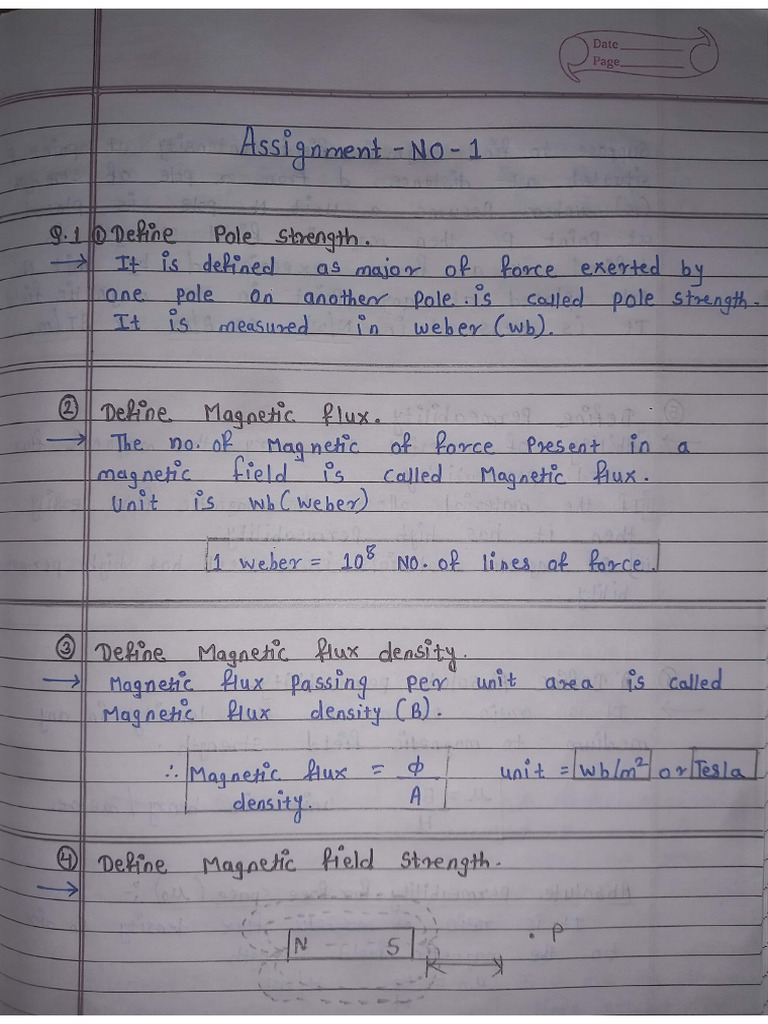 Date
Page
Assignment - NO - 1
Q.1 ① Define Pole Strength.
→ It is defined as major of force exerted by
one pole on another pole. is called pole strength.
It is measured in weber (wb).
② Define Magnetic flux.
→ The no. of Magnetic of force Present in a
magnetic field is called Magnetic flux.
Unit is wb (weber)
1 weber = 10⁸ NO. of lines of force.
③ Define Magnetic flux density.
→ Magnetic flux passing per unit area is called
Magnetic flux density (B).
∴ Magnetic flux density. = Φ/A unit = Wb/m² or Tesla
④ Define Magnetic field Strength.
→
N S . P